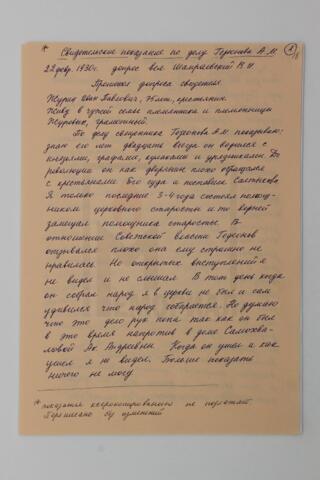 * Свидетельские показания по делу Гедеонова А.М.
22 февр. 1930 г. допрос вел Шамраевский В.И.
Протокол допроса свидетеля
Журин Иван Павлович, 75 лет, крестьянин.
Живу в чужой семье племянника и племянницы
Журовых, грамотный.
По делу священника Гедеонова А.М. показываю:
знаю его лет двадцать всегда он водился с
князьями, графами, кулаками и урядниками. До
революции он как дворянин плохо обращался
с крестьянами.
Я только последние 3-4 года состоял помощ-
ником церковного старосты и то верней
замещал помощника старосты. В
отношении Советской власти Гедеонов
отзывался плохо она ему страшно не
нравилась. Но открытых выступлений я
не видел и не слышал. В тот день когда
он собрал народ я в церкви не был и сам
удивился что народ собирается. Но думаю
что это дело рук попа так как он был
в это время напротив в доме
Андреевны. Когда он ушел и как
ушел я не видел. Больше показать
ничего не могу
* показания ксерокопированию не подлежат
Переписано без изменений